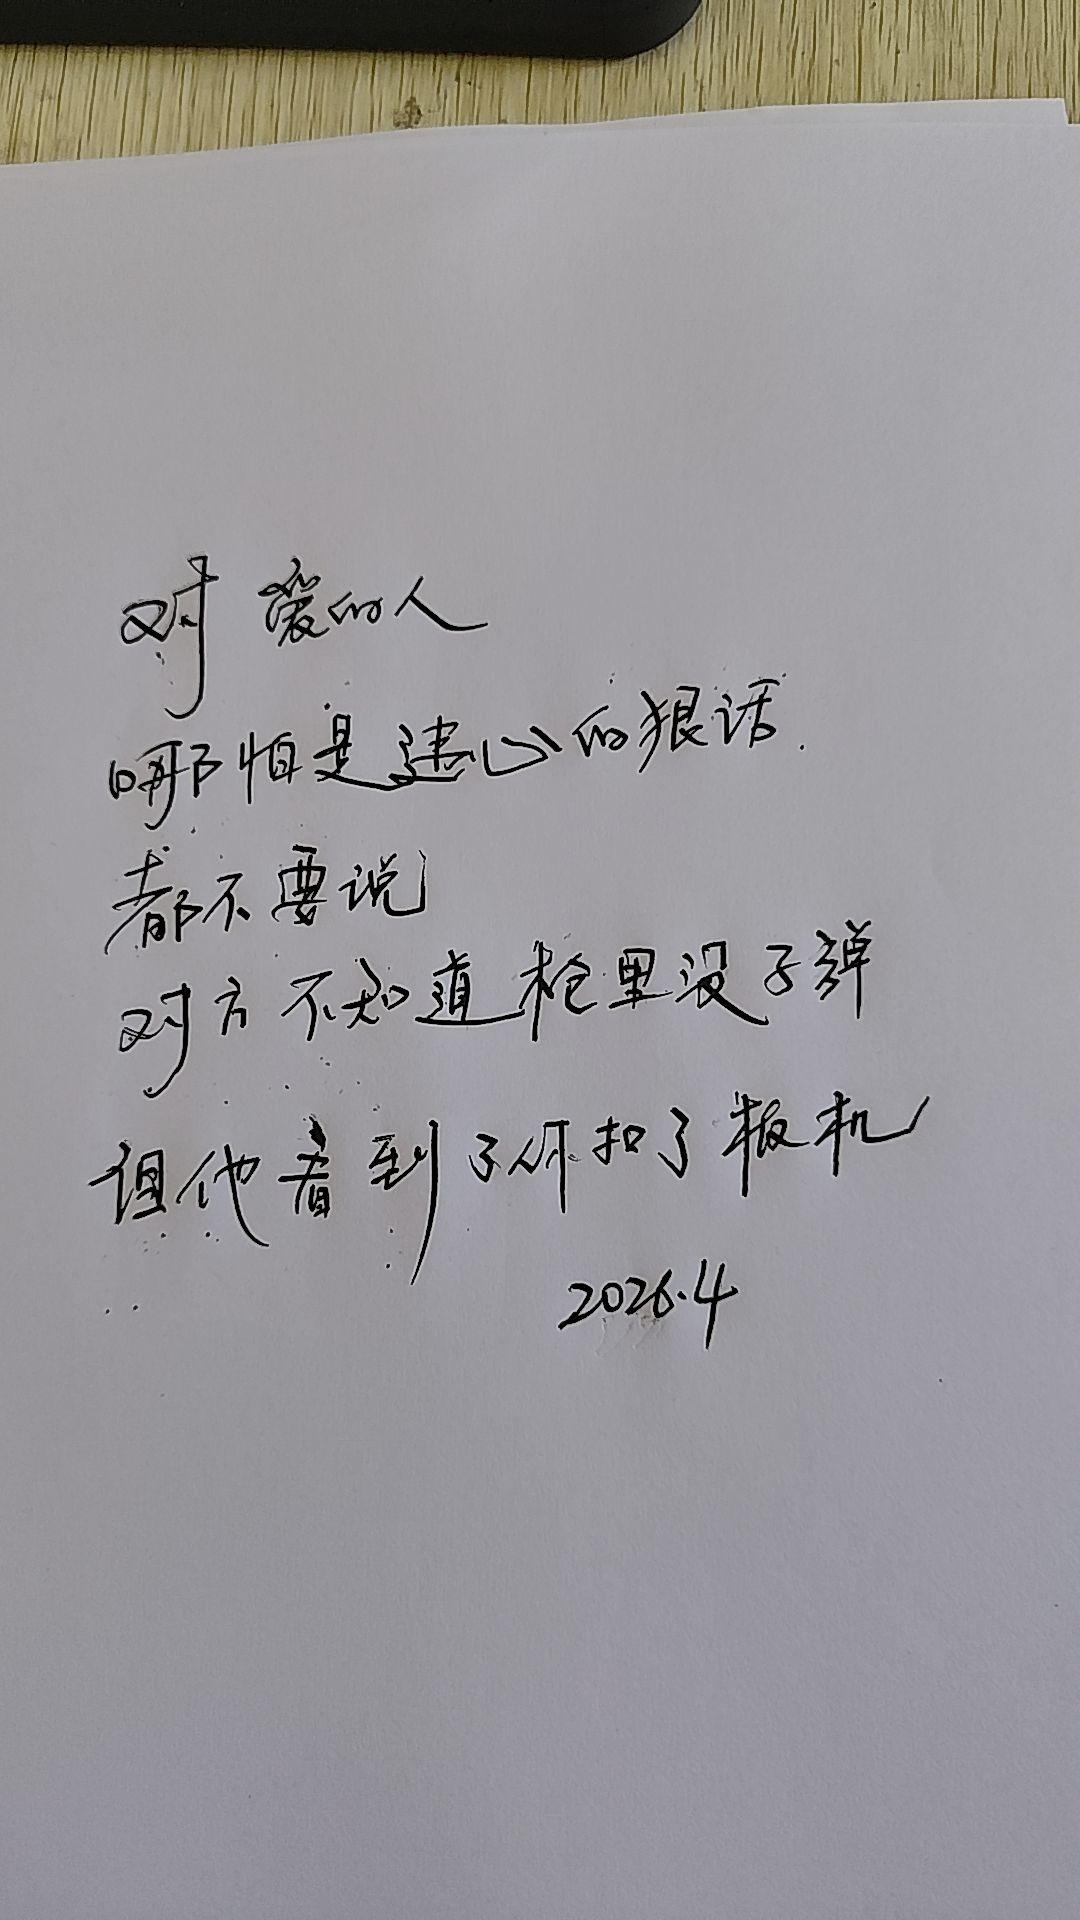 对爱的人
哪怕是违心的狠话.
都不要说
对方不知道枪里没子弹
但他看到了你扣了板机
2026.4